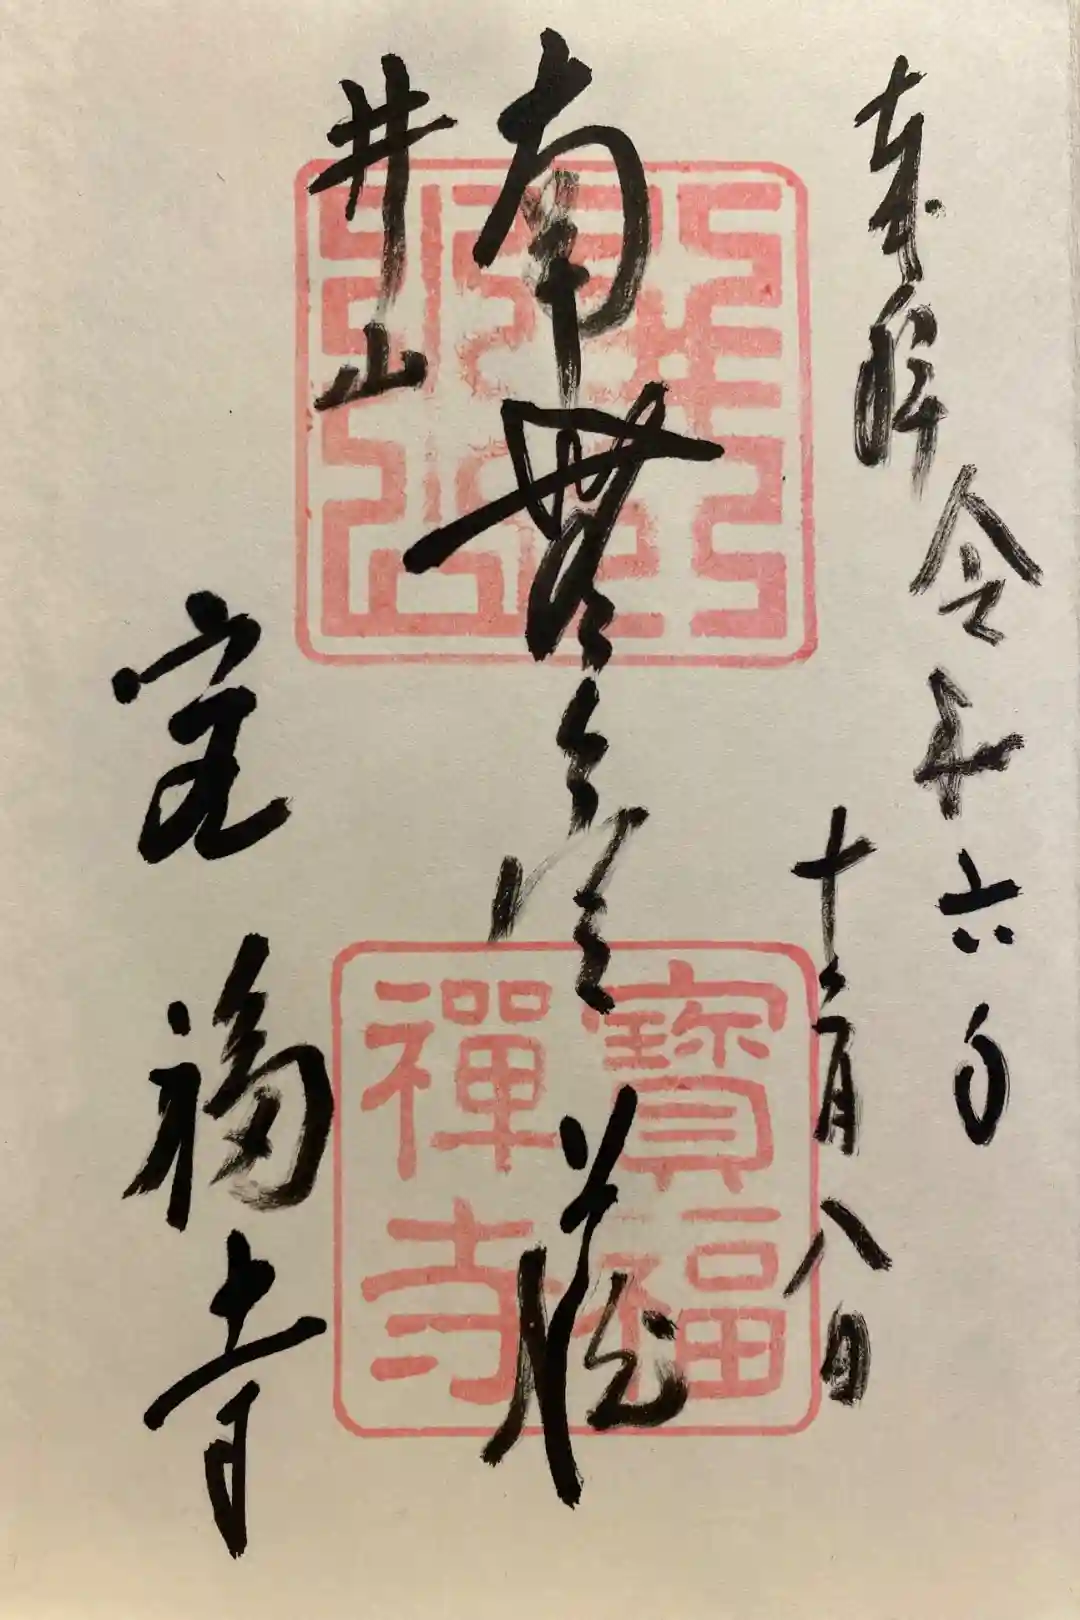 奉拝
令和六年
十二月八日
南無虚空蔵
井山
宝福寺
寶福
禪寺